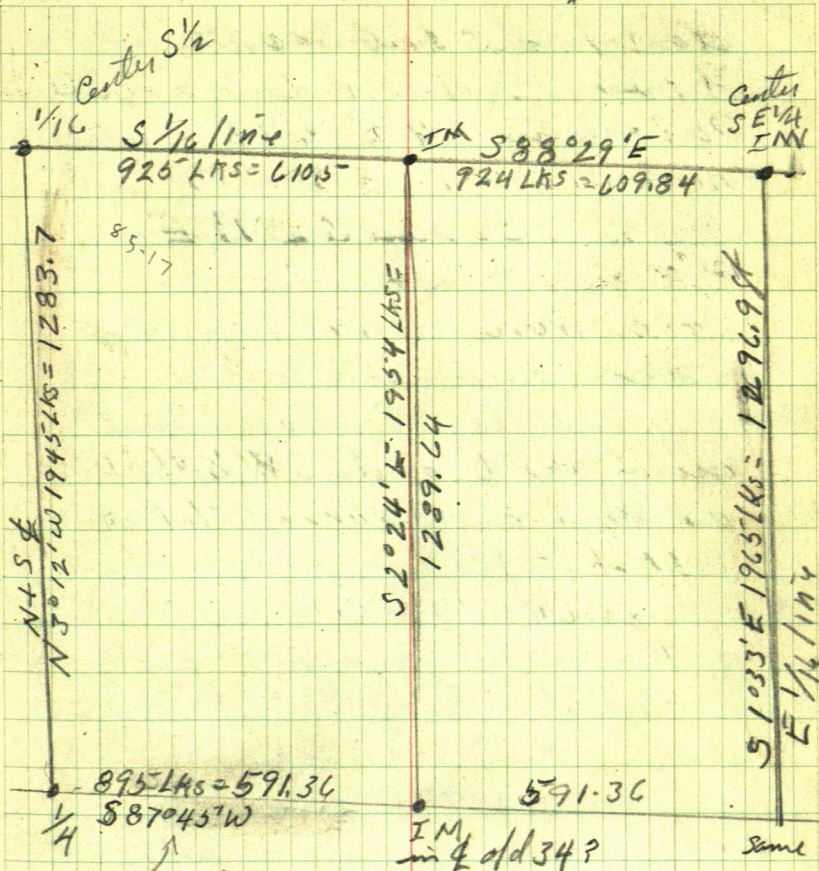 Center S 1/2
1/16
S 1/16 line
925 LKS = 610.5
IM
S 88° 29' E
924 LKS = 609.84
Center
SE 1/4
IM
85.17
N+S ℄
N 3° 12' W 1945 LKS = 1283.7
S 2° 24' E 1954 LKS =
1289.64
S 1° 33' E 1965 LKS = 1296.9 ft
E 1/16 line
895 LKS = 591.36
S 87° 45' W
1/4
591.36
IM
in ℄ old 34?
same